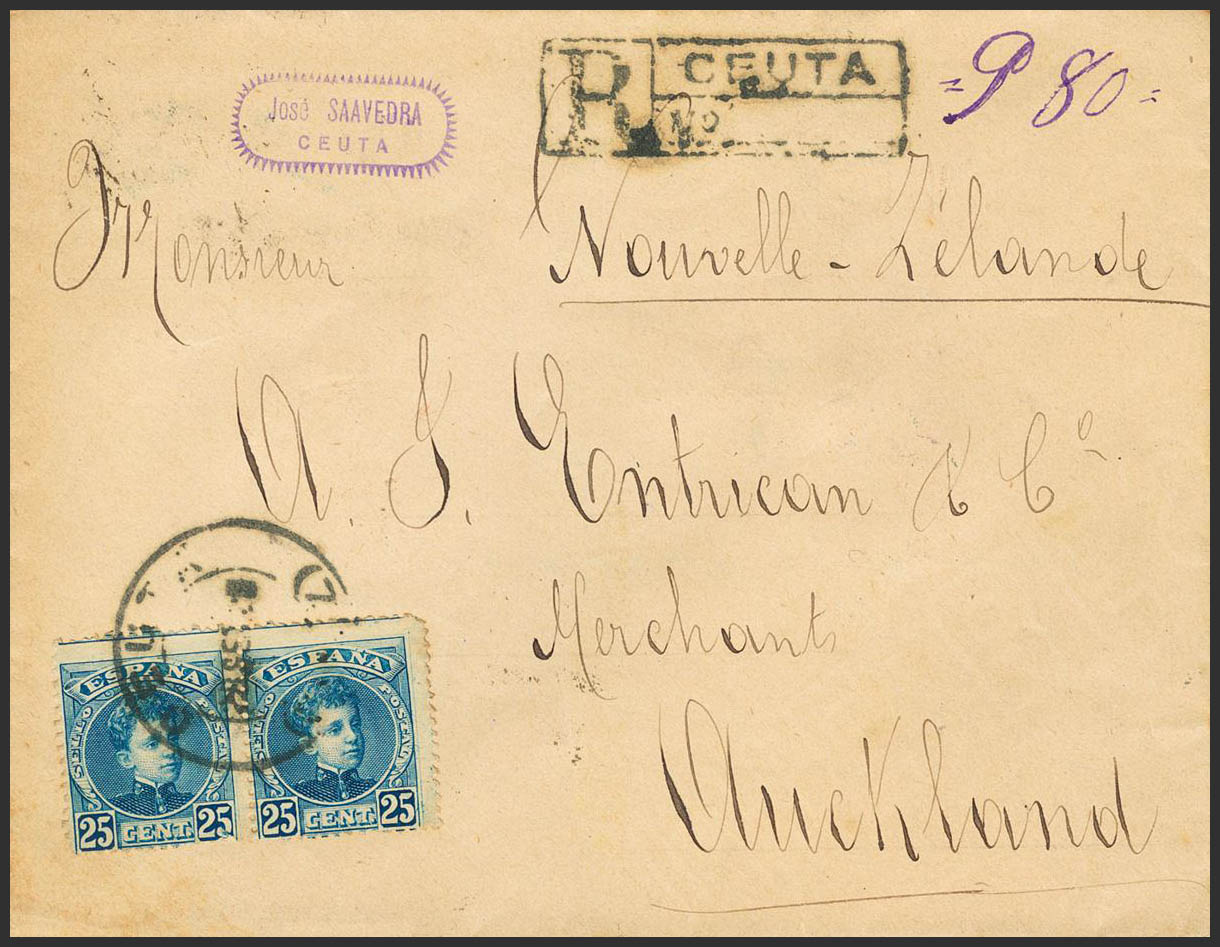 José SAAVEDRA
CEUTA
R CEUTA
Nº
= P 80 =
Monsieur
Nouvelle-Zélande
A. J. Entrican & Cº
Merchants
Auckland
CEUTA
ESPAÑA
SELLO POSTAL
25 CENT. 25
ESPAÑA
SELLO POSTAL
25 CENT. 25